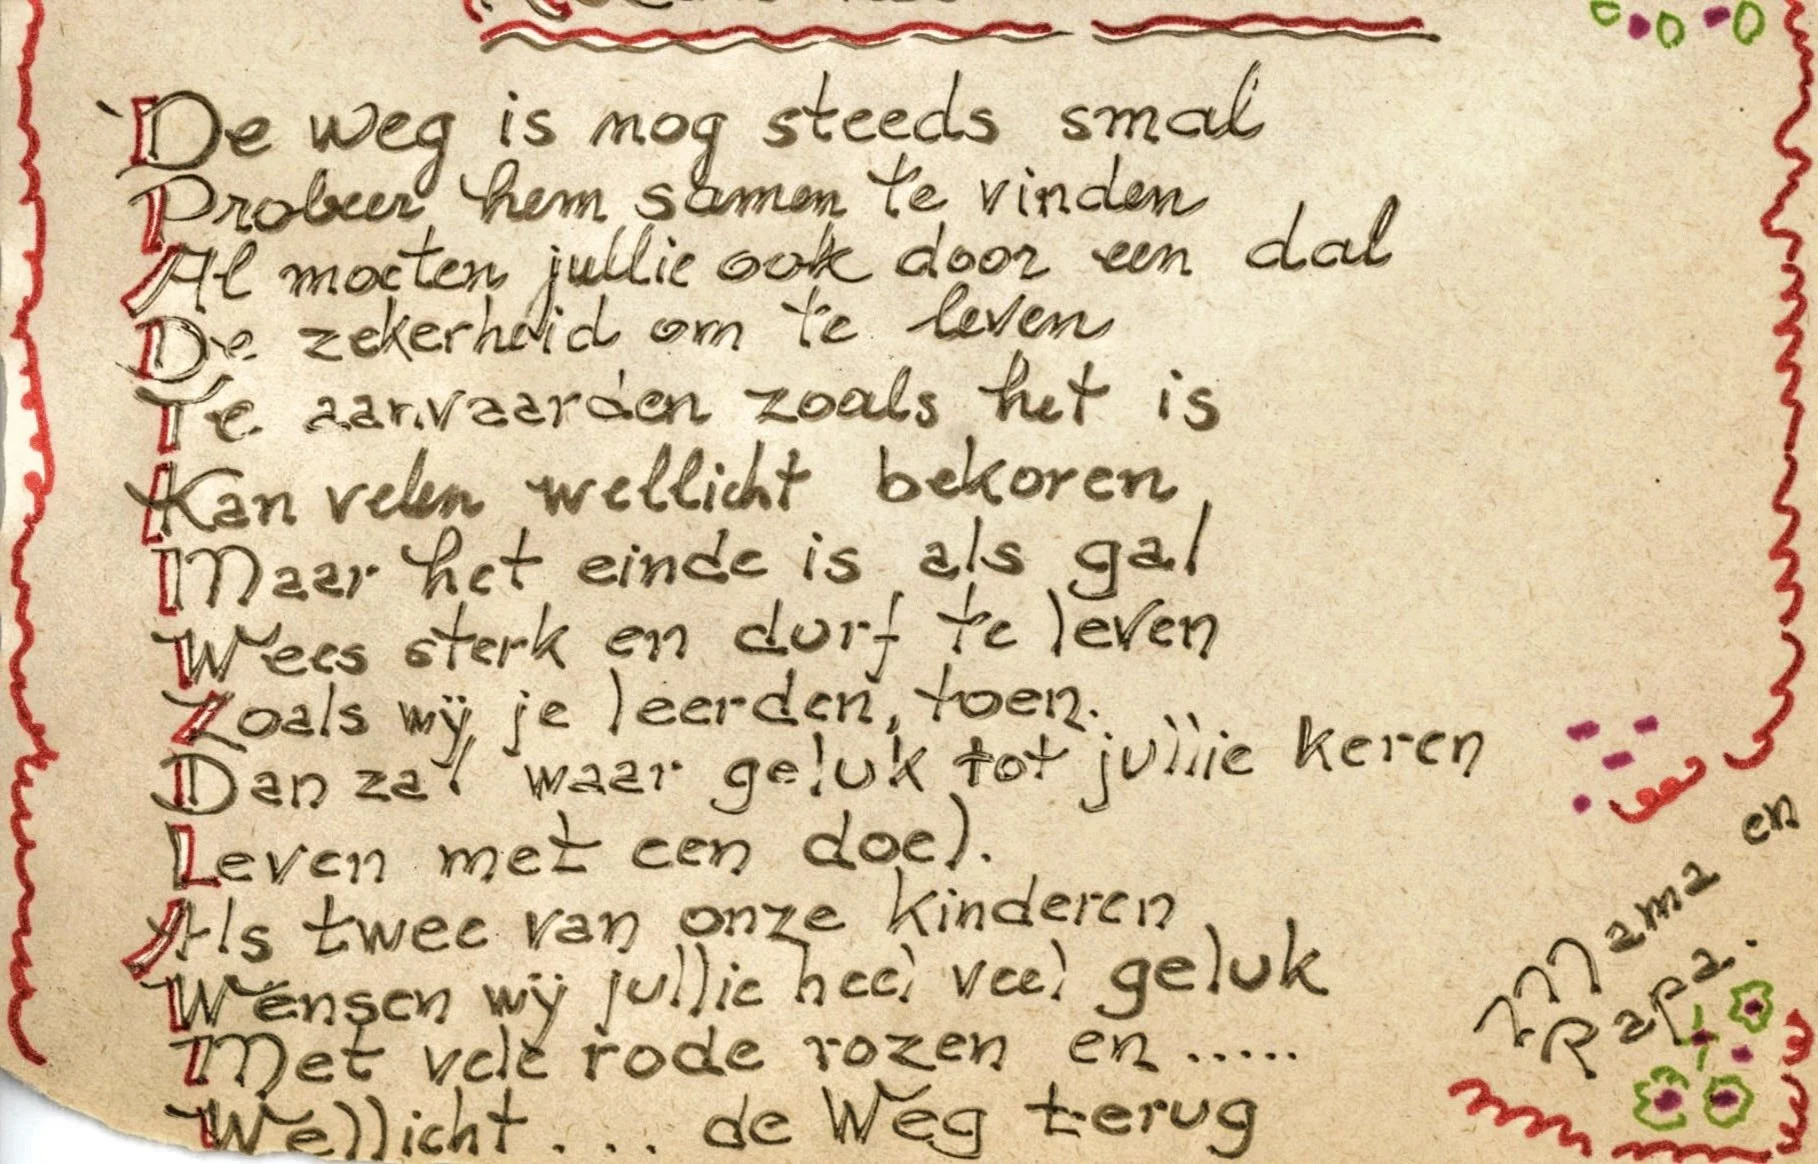 De weg is nog steeds smal
Probeer hem samen te vinden
Al moeten jullie ook door een dal
De zekerheid om te leven
Te aanvaarden zoals het is
Kan velen wellicht bekoren
Maar het einde is als gal
Wees sterk en durf te leven
Zoals wij je leerden, toen.
Dan zal waar geluk tot jullie keren
Leven met een doel.
Als twee van onze kinderen
Wensen wij jullie heel veel geluk
Met vele rode rozen en .....
Wellicht ... de Weg terug
Mama en
Papa.